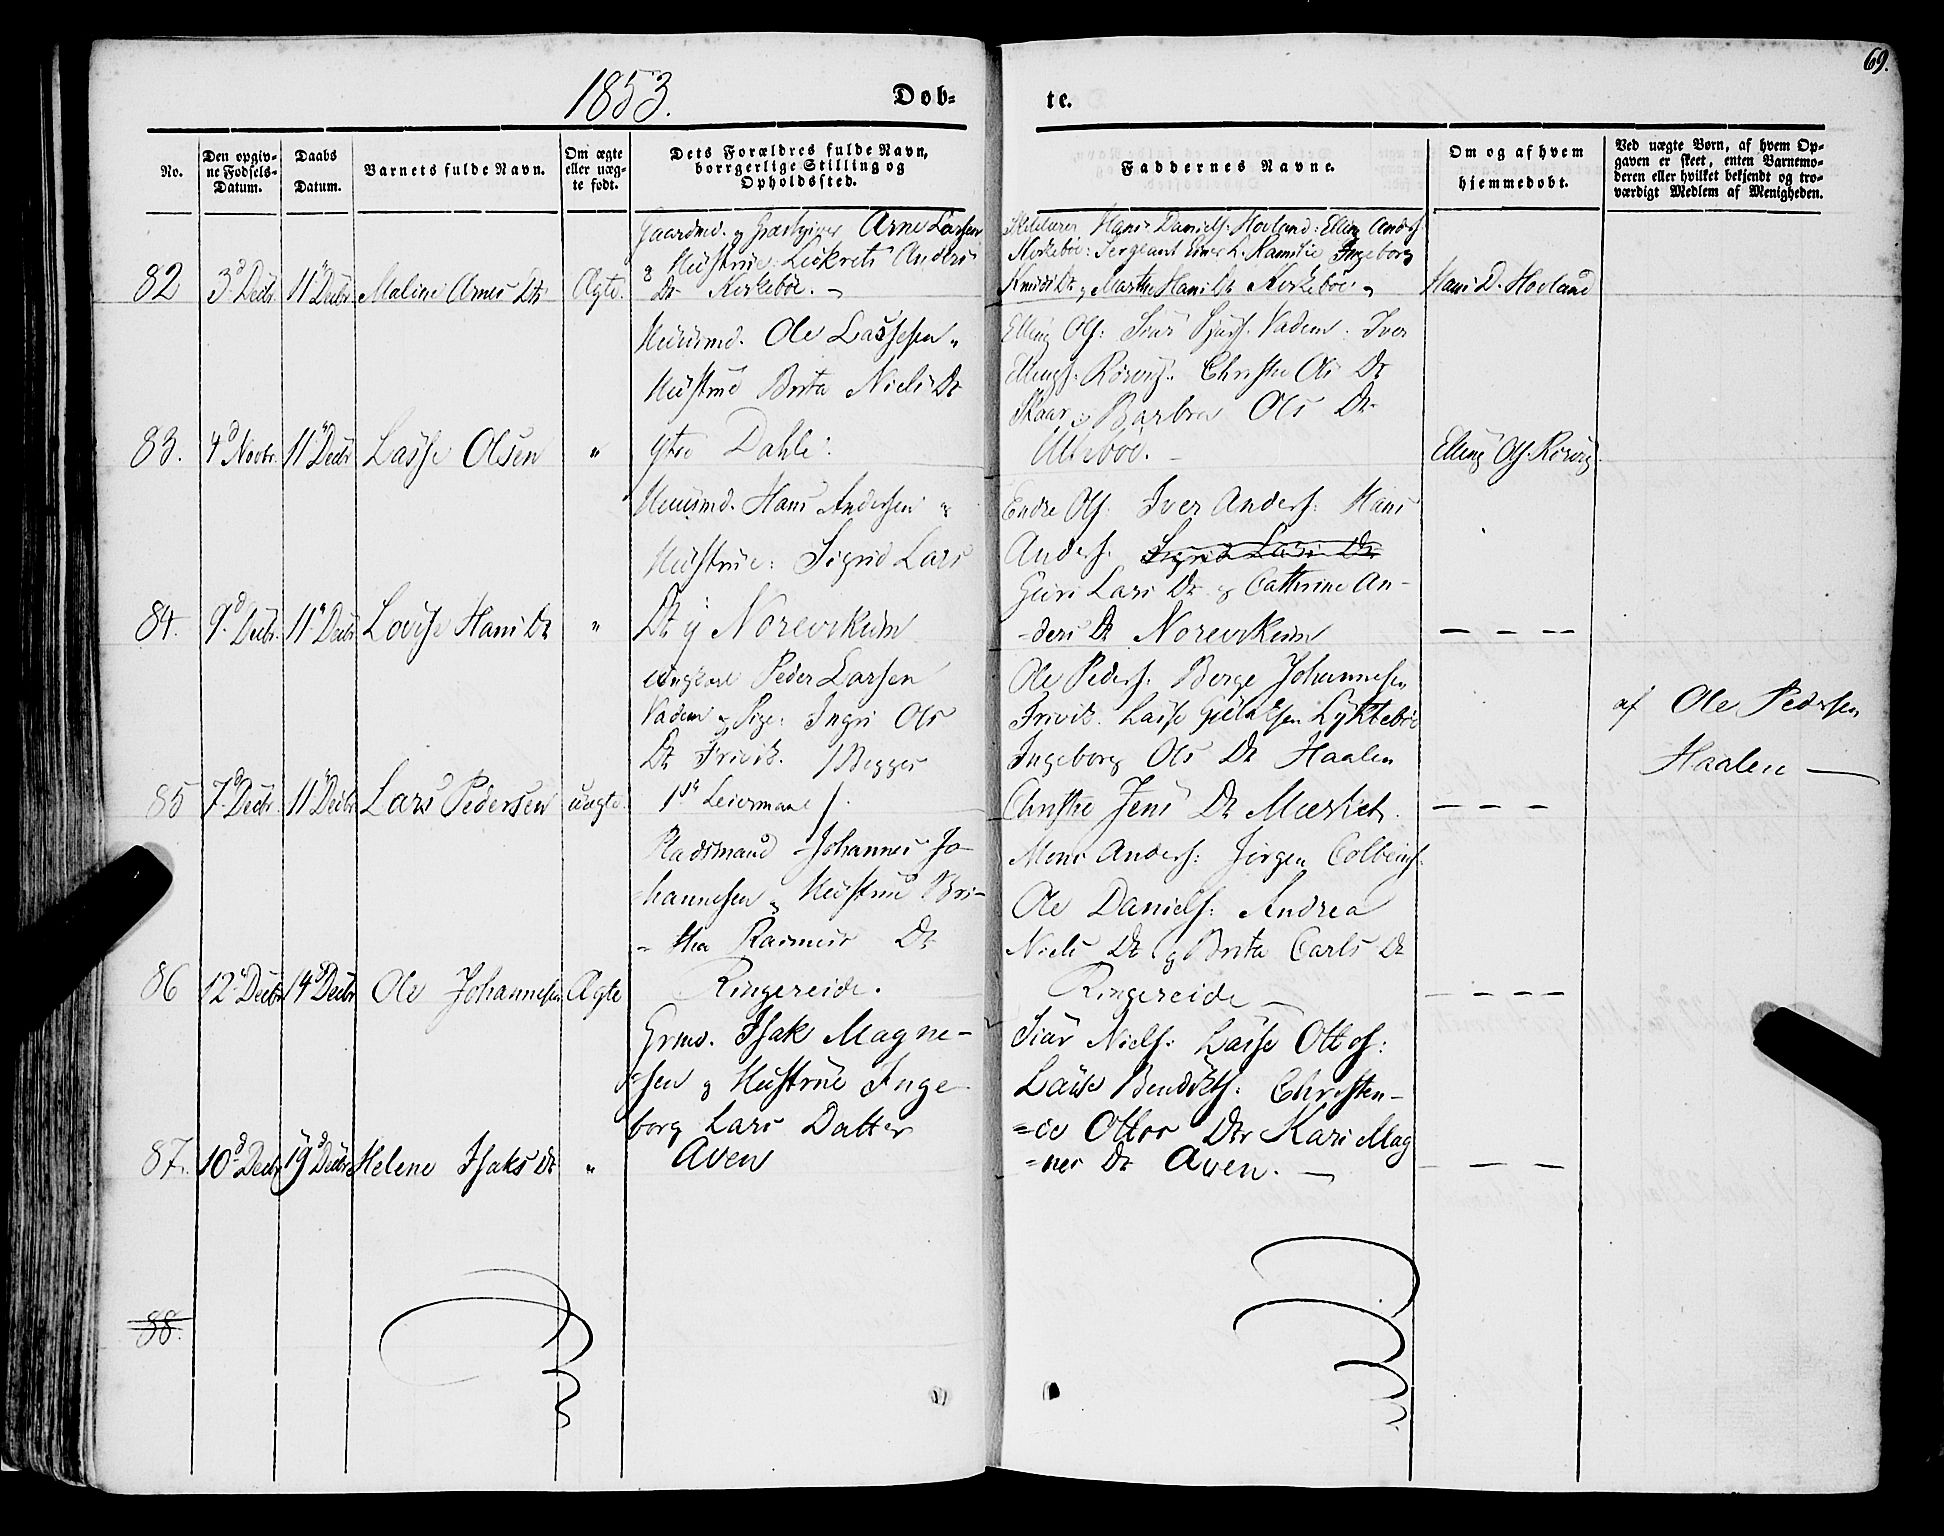 69.
1853.
Døb-
te.
No.
Den opgiv-
ne Fødsels-
Datum.
Daabs
Datum.
Barnets fulde Navn.
Om ægte
eller uæg-
te født.
Dets Forældres fulde Navn,
borgerlige Stilling og
Opholdssted.
Faddernes Navne.
Om og af hvem
hjemmedøbt.
Ved uægte Børn, af hvem Op-
gaven er skeet, enten Barnemo-
deren eller hvilket bekjendt og tro-
værdigt Medlem af Menigheden.
82
3d Decbr.
11te Decbr
Maline Arnes Dtr
Ægte.
Gaardmd. og Giæstgiver Arne Larsen
& Hustrue: Lukretz Anders
Dtr Kirkeboe.
Hans Daniels: Hovland: Elling Anders
Kirkeboe: Sergeant Ingeborg
Knuds Dtr, Marthe Hans Dtr Kirkeboe
Hans D. Hovland
83.
4d Novbr.
11te Decbr
Lasse Olsen
"
Huusmd. Ole Lassesen "
Hustrue Brita Niels Dr
ytre Dahle:
Elling Ols: Siur Vadem: Iver
Ellings: Rörvig: Christie Ols Dr
Skaar og Barbra Ols Dr
Alleboe.
Elling Ols. Rörvig
84.
9d Decbr.
11te Decbr
Lovise Hans Dr
"
Huusmd. Hans Andersen &
Hustrue: Sigrid Lars
Dr ij Norevikum
Endre Ols: Iver Anders: Hans
Anders. Sigrid Lars Dr
Guri Lars Dr & Cathrine An-
-ders Dr Norevikum
85
7d Decbr.
11te Decbr
Lars Pedersen
uægte
Ungkarl Peder Larsen
Vadem & Pige: Ingri Ols
Dr Frivik. /Begges
1ste Leiermaal/.
Ole Peders. Berge Johannesen
Frivik. Lasse Lyktebøe
Ingeborg Ols Dr Haalen
Christie Jens Dr Mærket.
af Ole Pedersen
Haalen
86
12te Decbr
14d Decbr
Ole Johannesen
Ægte
Pladsmand Johannes Jo-
-hannesen & Hustrue Bri-
-tha Rasmus Dr
Ringereide.
Mons Anders: Jörgen Colbens:
Ole Daniels: Andrea
Niels Dr og Brita Carls Dr
Ringereide
87.
10d Decbr
19d Decbr
Helene Isaks Dr
"
Grmd. Isak Magne-
-sen & Hustrue Inge-
borg Lars Datter
Aven
Siur Niels: Lasse Ottos:
Lasse Bendikts: Christen-
=ce Ottos Dtr Kari Mag
=nes Dr Aven.
88.